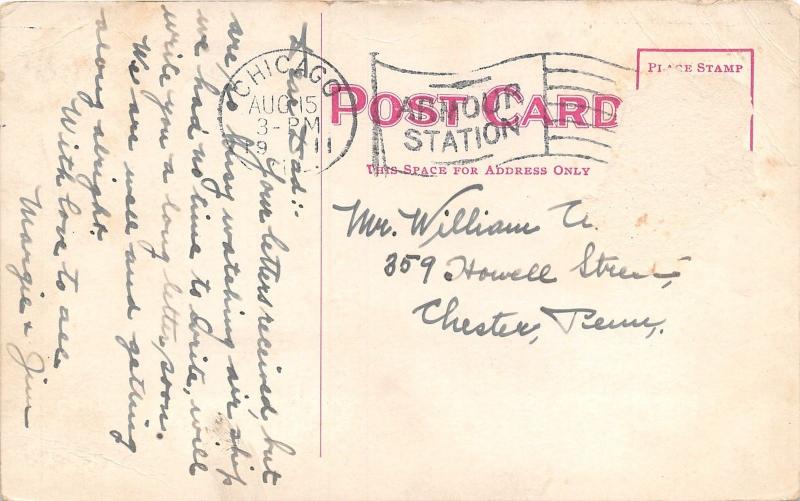 Dear Dad:-
Your letters received, but
are so busy watching air ship
we had no time to write, will
write you a long letter, soon.
We are well and getting
along alright.
With love to all
Margie & Jim
CHICAGO
AUG 15
3-PM
19 11
ARMOUR
STATION
POST CARD
PLACE STAMP
THIS SPACE FOR ADDRESS ONLY
Mr. William
359 Howell Street,
Chester, Penn,